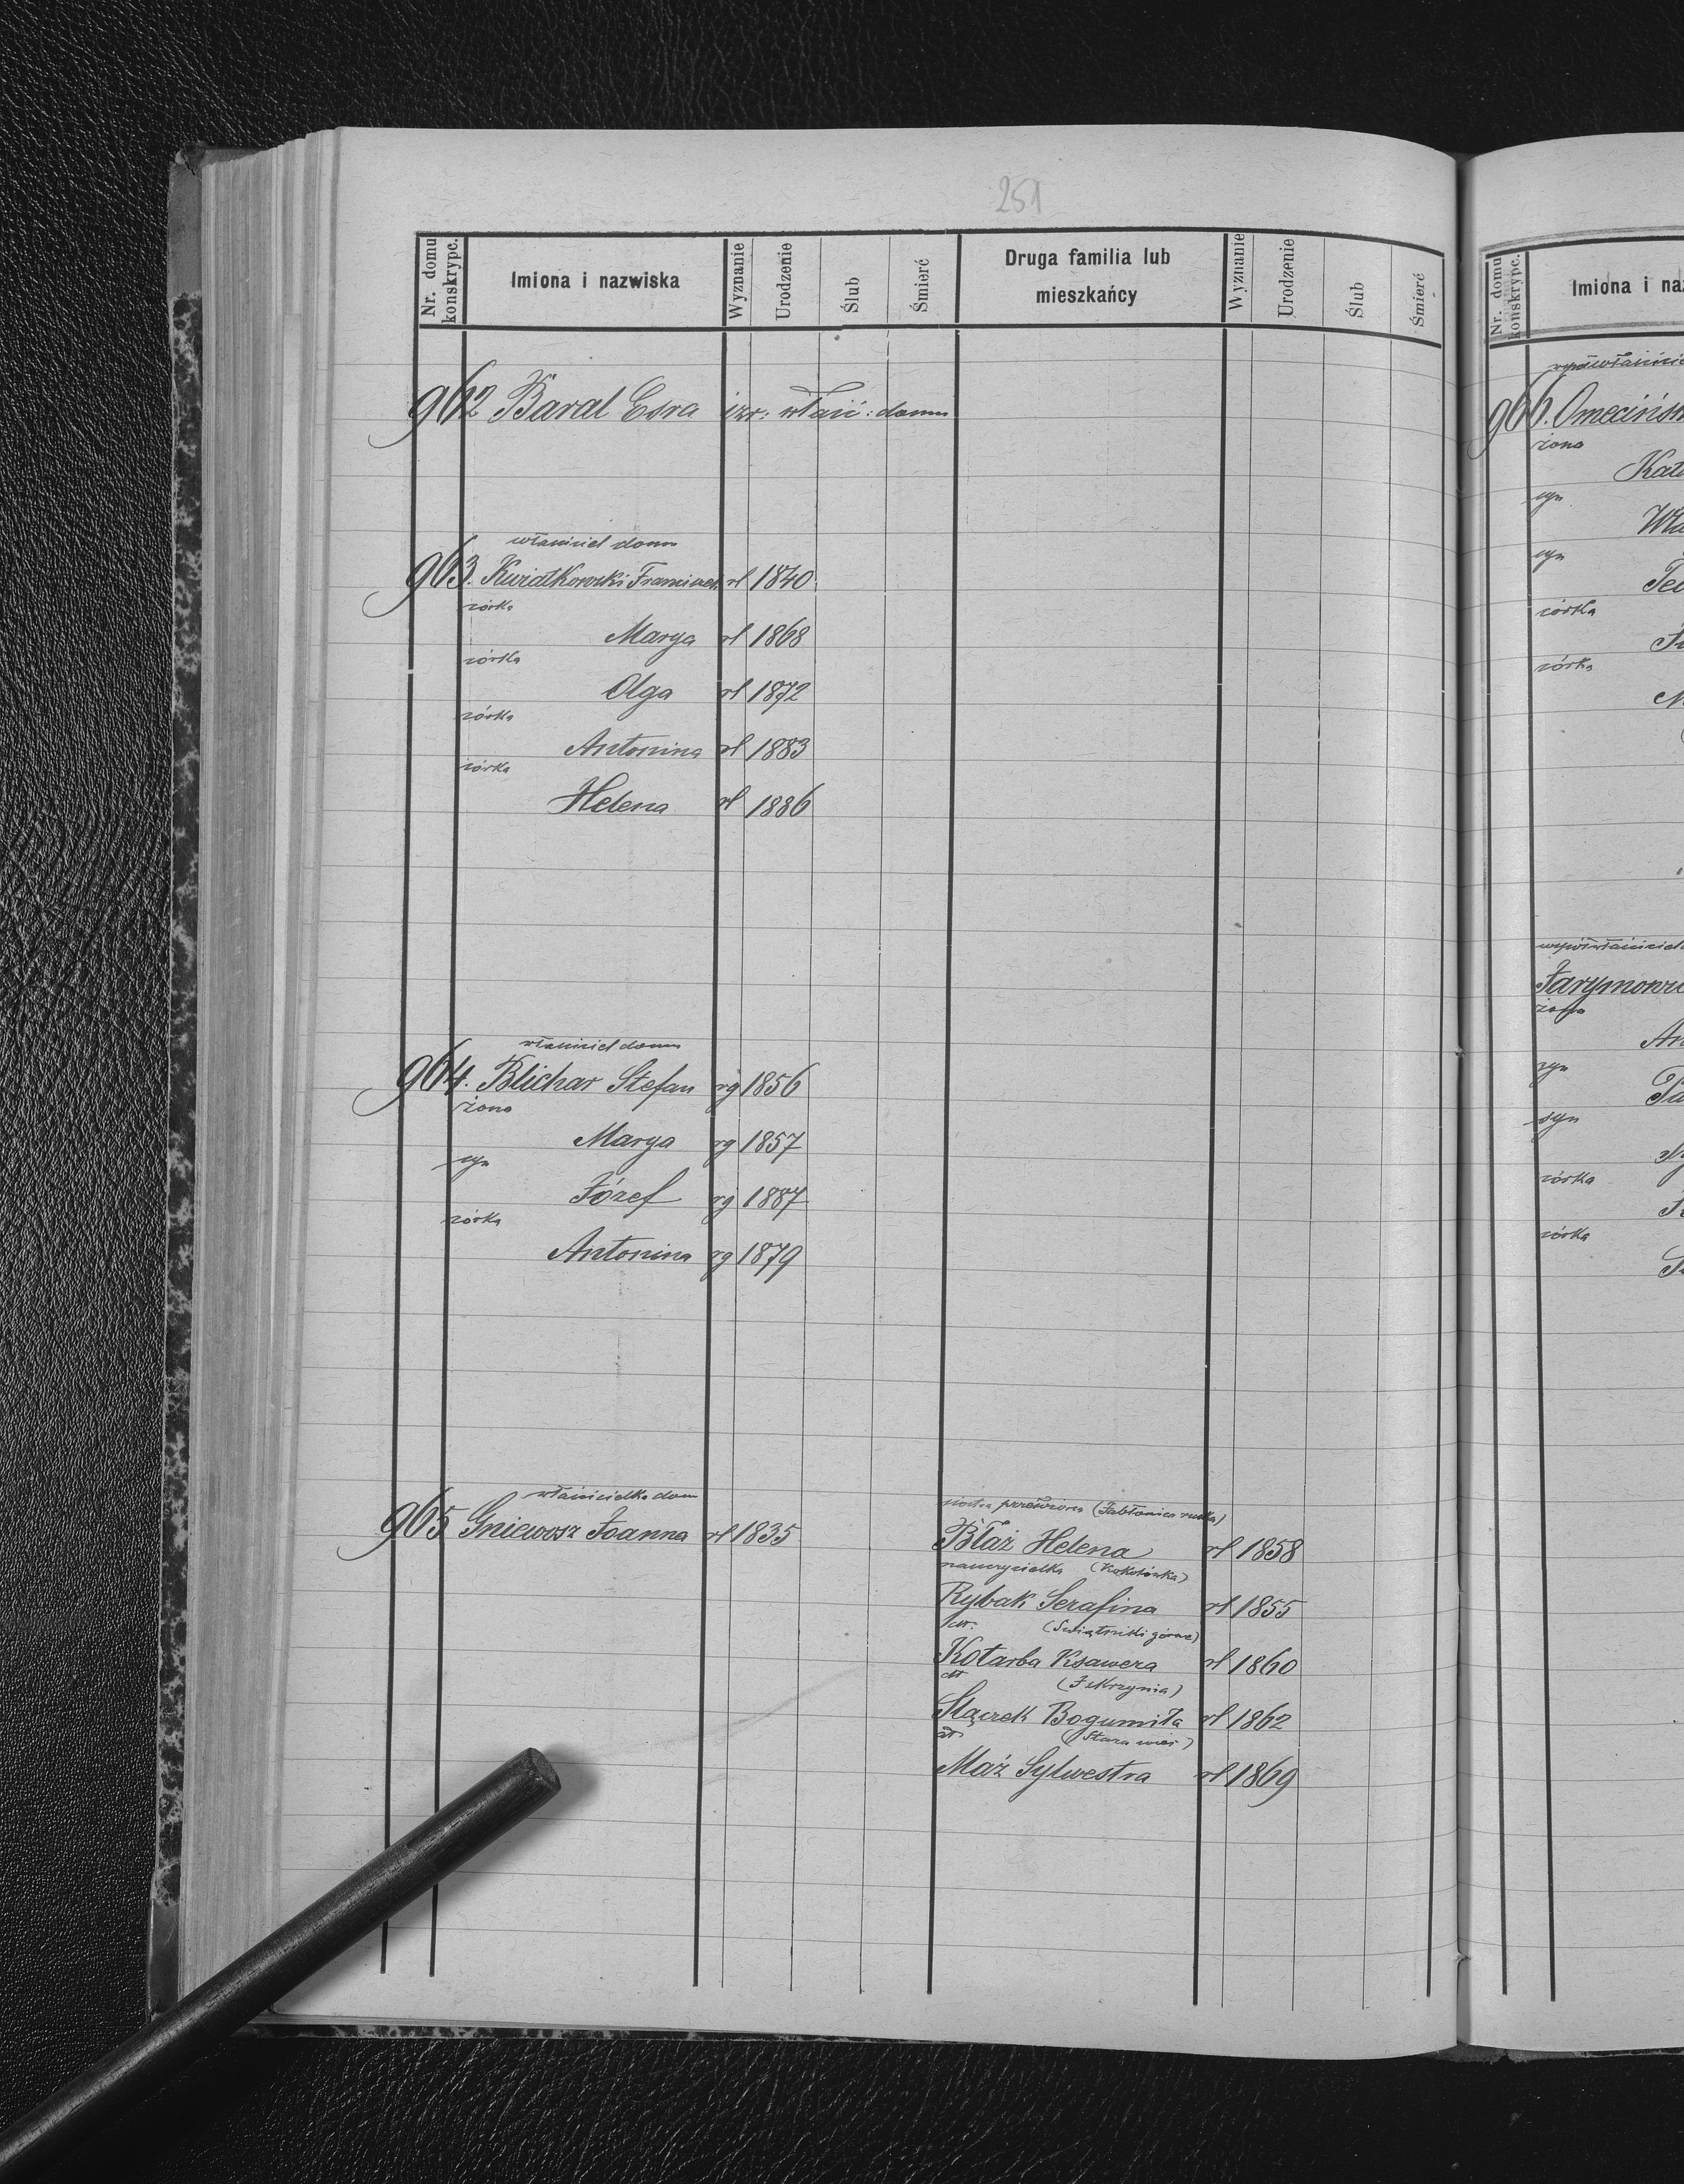 251
Nr. domu konskrypc.
Imiona i nazwiska
Wyznanie
Urodzenie
Ślub
Śmierć
Druga familia lub
mieszkańcy
Wyznanie
Urodzenie
Ślub
Śmierć
962 Baral Esra izr: właść: domu
właściciel domu
963. Kwiatkowski Franciszek rł 1840
córka
Marya rł 1868
córka
Olga rł 1872
córka
Antonina rł 1883
córka
Helena rł 1886
właściciel domu
964. Blichar Stefan rg 1856
żona
Marya rg 1857
syn
Józef rg 1887
córka
Antonina rg 1879
właścicielka dom
965 Gniewosz Joanna rł 1835
siostra przełożona (Jabłonica ruska)
Błaż Helena rł 1858
nauczycielka (Kokotówka)
Rybak Serafina rł 1855
(Świątniki górne)
Kotarba Ksawera rł 1860
dt (Iskrzynia)
Stączek Bogumiła rł 1862
dt (Stara wieś)
Maź Sylwestra rł 1869
Nr. domu konskrypc.
Imiona i na
współwłaścicie
966. Omecińs
żona
Kat
syn
syn
córka
córka
współwłaściciel
Jarymowi
żona
An
syn
syn
córka
córka